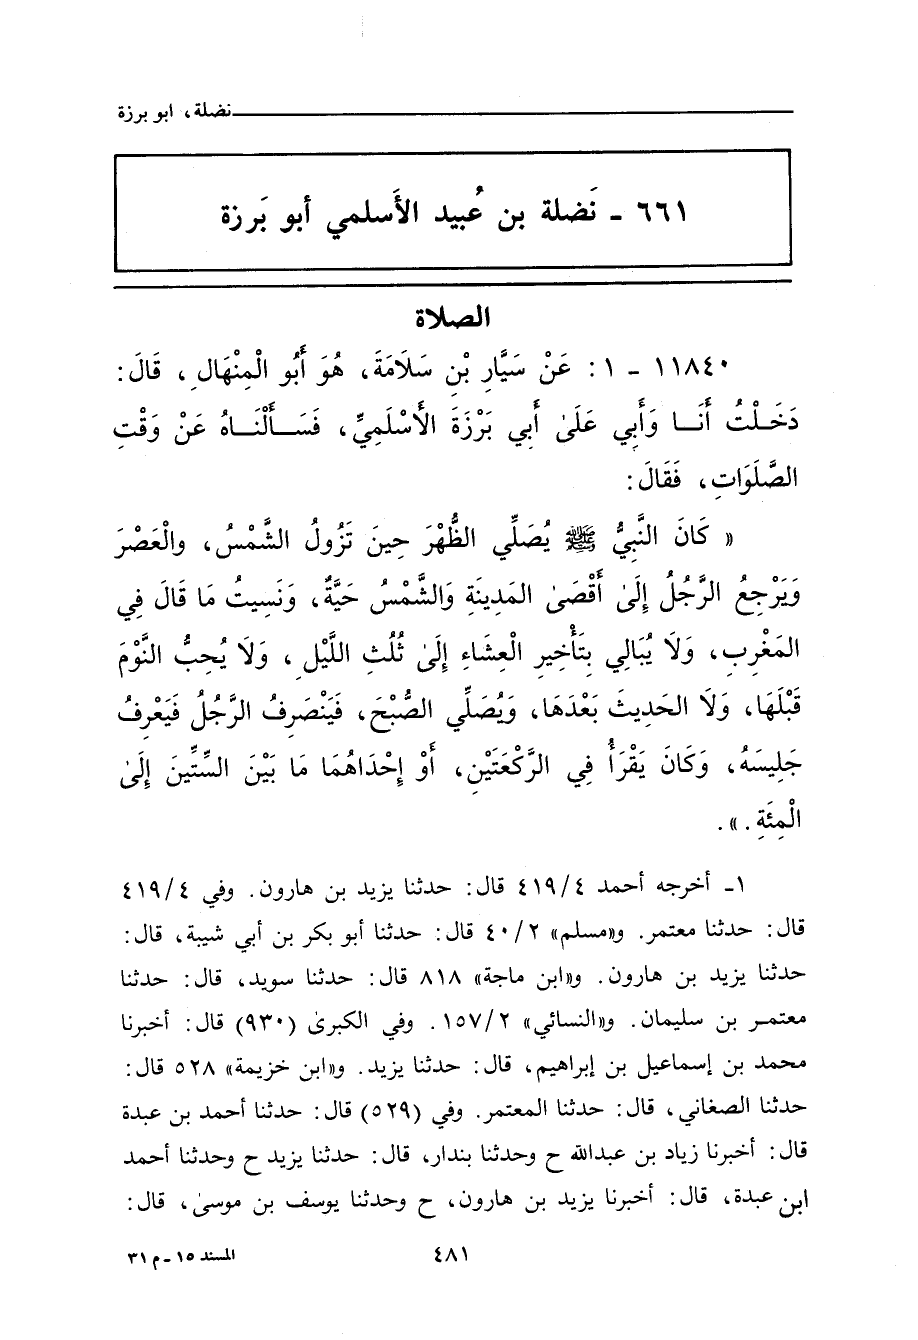 نضلة، ابو برزة
٦٦١ - نَضلة بن عُبيد الأَسلمي أبو بَرزة
الصلاة
١١٨٤٠ - ١: عَنْ سَيَّارِ بْنِ سَلَامَةَ، هُوَ أَبُو الْمِنْهَالِ، قَالَ:
دَخَلْتُ أَنَا وَأَبِي عَلَىٰ أَبِي بَرْزَةَ الأَسْلَمِيِّ، فَسَأَلْنَاهُ عَنْ وَقْتِ
الصَّلَوَاتِ، فَقَالَ:
« كَانَ النَّبِيُّ ﷺ يُصَلِّي الظُّهْرَ حِينَ تَزُولُ الشَّمْسُ، والْعَصْرَ
وَيَرْجِعُ الرَّجُلُ إِلَىٰ أَقْصَىٰ المَدِينَةِ وَالشَّمْسُ حَيَّةٌ، وَنَسِيتُ مَا قَالَ فِي
المَغْرِبِ، وَلَا يُبَالِي بِتَأْخِيرِ الْعِشَاءِ إِلَىٰ ثُلُثِ اللَّيْلِ، وَلَا يُحِبُّ النَّوْمَ
قَبْلَهَا، وَلَا الحَدِيثَ بَعْدَهَا، وَيُصَلِّي الصُّبْحَ، فَيَنْصَرِفُ الرَّجُلُ فَيَعْرِفُ
جَلِيسَهُ، وَكَانَ يَقْرَأُ فِي الرَّكْعَتَيْنِ، أَوْ إِحْدَاهُمَا مَا بَيْنَ السِّتِّينَ إِلَىٰ
الْمِئَةِ.».
١- أخرجه أحمد ٤١٩/٤ قال: حدثنا يزيد بن هارون. وفي ٤١٩/٤
قال: حدثنا معتمر. و«مسلم» ٤٠/٢ قال: حدثنا أبو بكر بن أبي شيبة، قال:
حدثنا يزيد بن هارون. و«ابن ماجة» ٨١٨ قال: حدثنا سويد، قال: حدثنا
معتمر بن سليمان. و«النسائي» ١٥٧/٢. وفي الكبرىٰ (٩٣٠) قال: أخبرنا
محمد بن إسماعيل بن إبراهيم، قال: حدثنا يزيد. و«ابن خزيمة» ٥٢٨ قال:
حدثنا الصغاني، قال: حدثنا المعتمر. وفي (٥٢٩) قال: حدثنا أحمد بن عبدة
قال: أخبرنا زياد بن عبدالله ح وحدثنا بندار، قال: حدثنا يزيد ح وحدثنا أحمد
ابن عبدة، قال: أخبرنا يزيد بن هارون، ح وحدثنا يوسف بن موسىٰ، قال:
٤٨١
المسند ١٥ - م ٣١